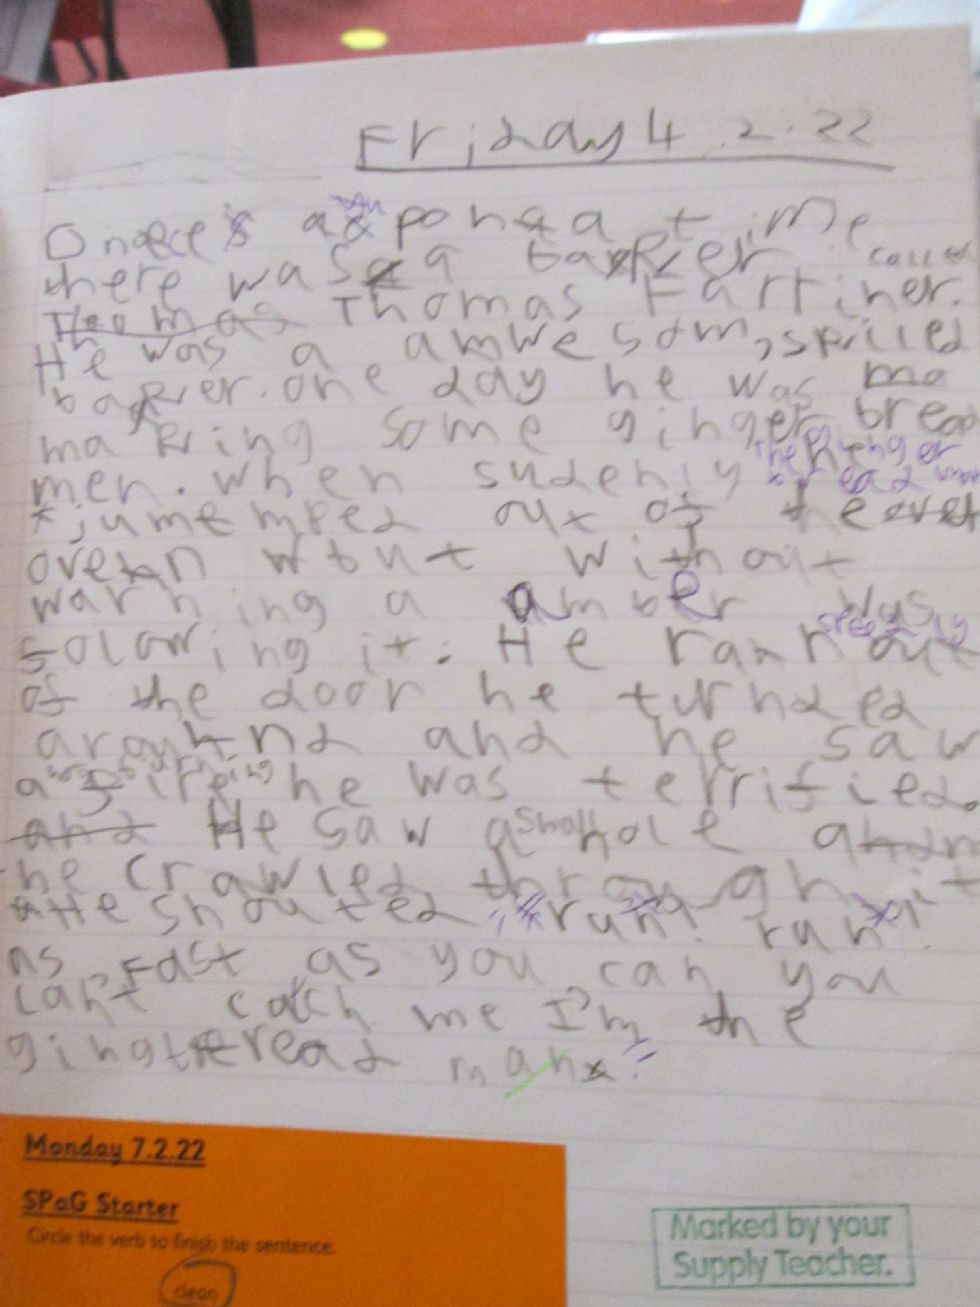 Friday 4.2.22
Once a pon a time
there was a baker called
Thomas Farriner.
He was a amwesom, skilled
baker. one day he was
making some ginger bread
men. when sudenly the ginger
bread man
jumped out of the
oven without
warning a amber was
folowing it. He ran speedily out
of the door he turned
around and he saw
a fire he was terrified.
He saw a small hole and
he crawled through it
He shouted, "run! run!
as Fast as you can you
can't catch me I'm the
gingerbread man!"
Monday 7.2.22
SPaG Starter
Circle the verb to finish the sentence.
clean
Marked by your
Supply Teacher.